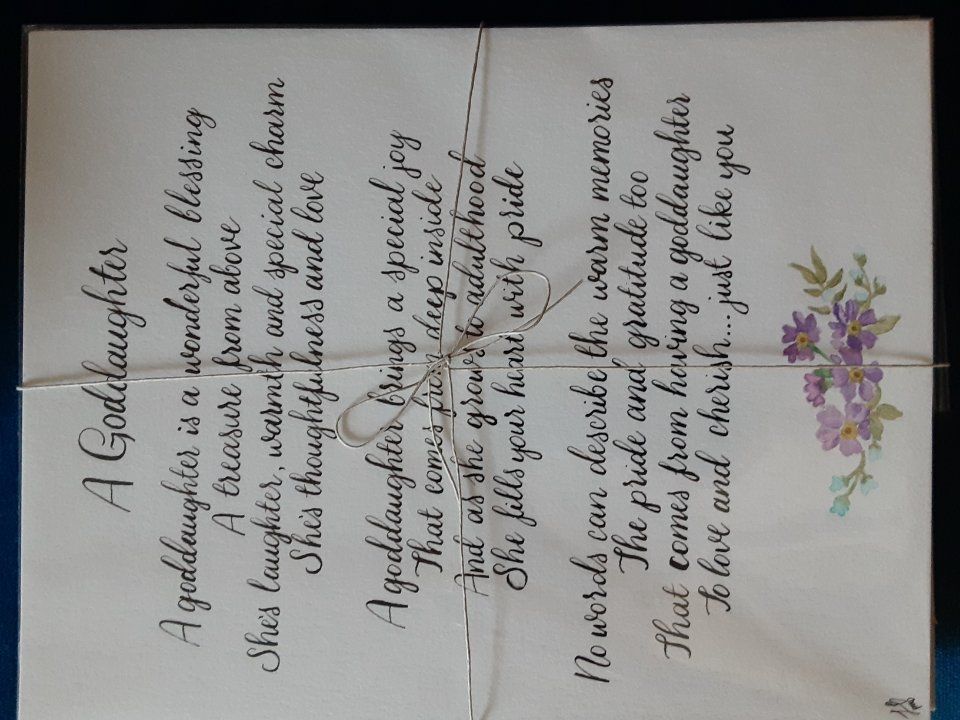 A Goddaughter
A goddaughter is a wonderful blessing
A treasure from above
She's laughter, warmth and special charm
She's thoughtfulness and love
A goddaughter brings a special joy
That comes from deep inside
And as she grows to adulthood
She fills your heart with pride
No words can describe the warm memories
The pride and gratitude too
That comes from having a goddaughter
To love and cherish... just like you